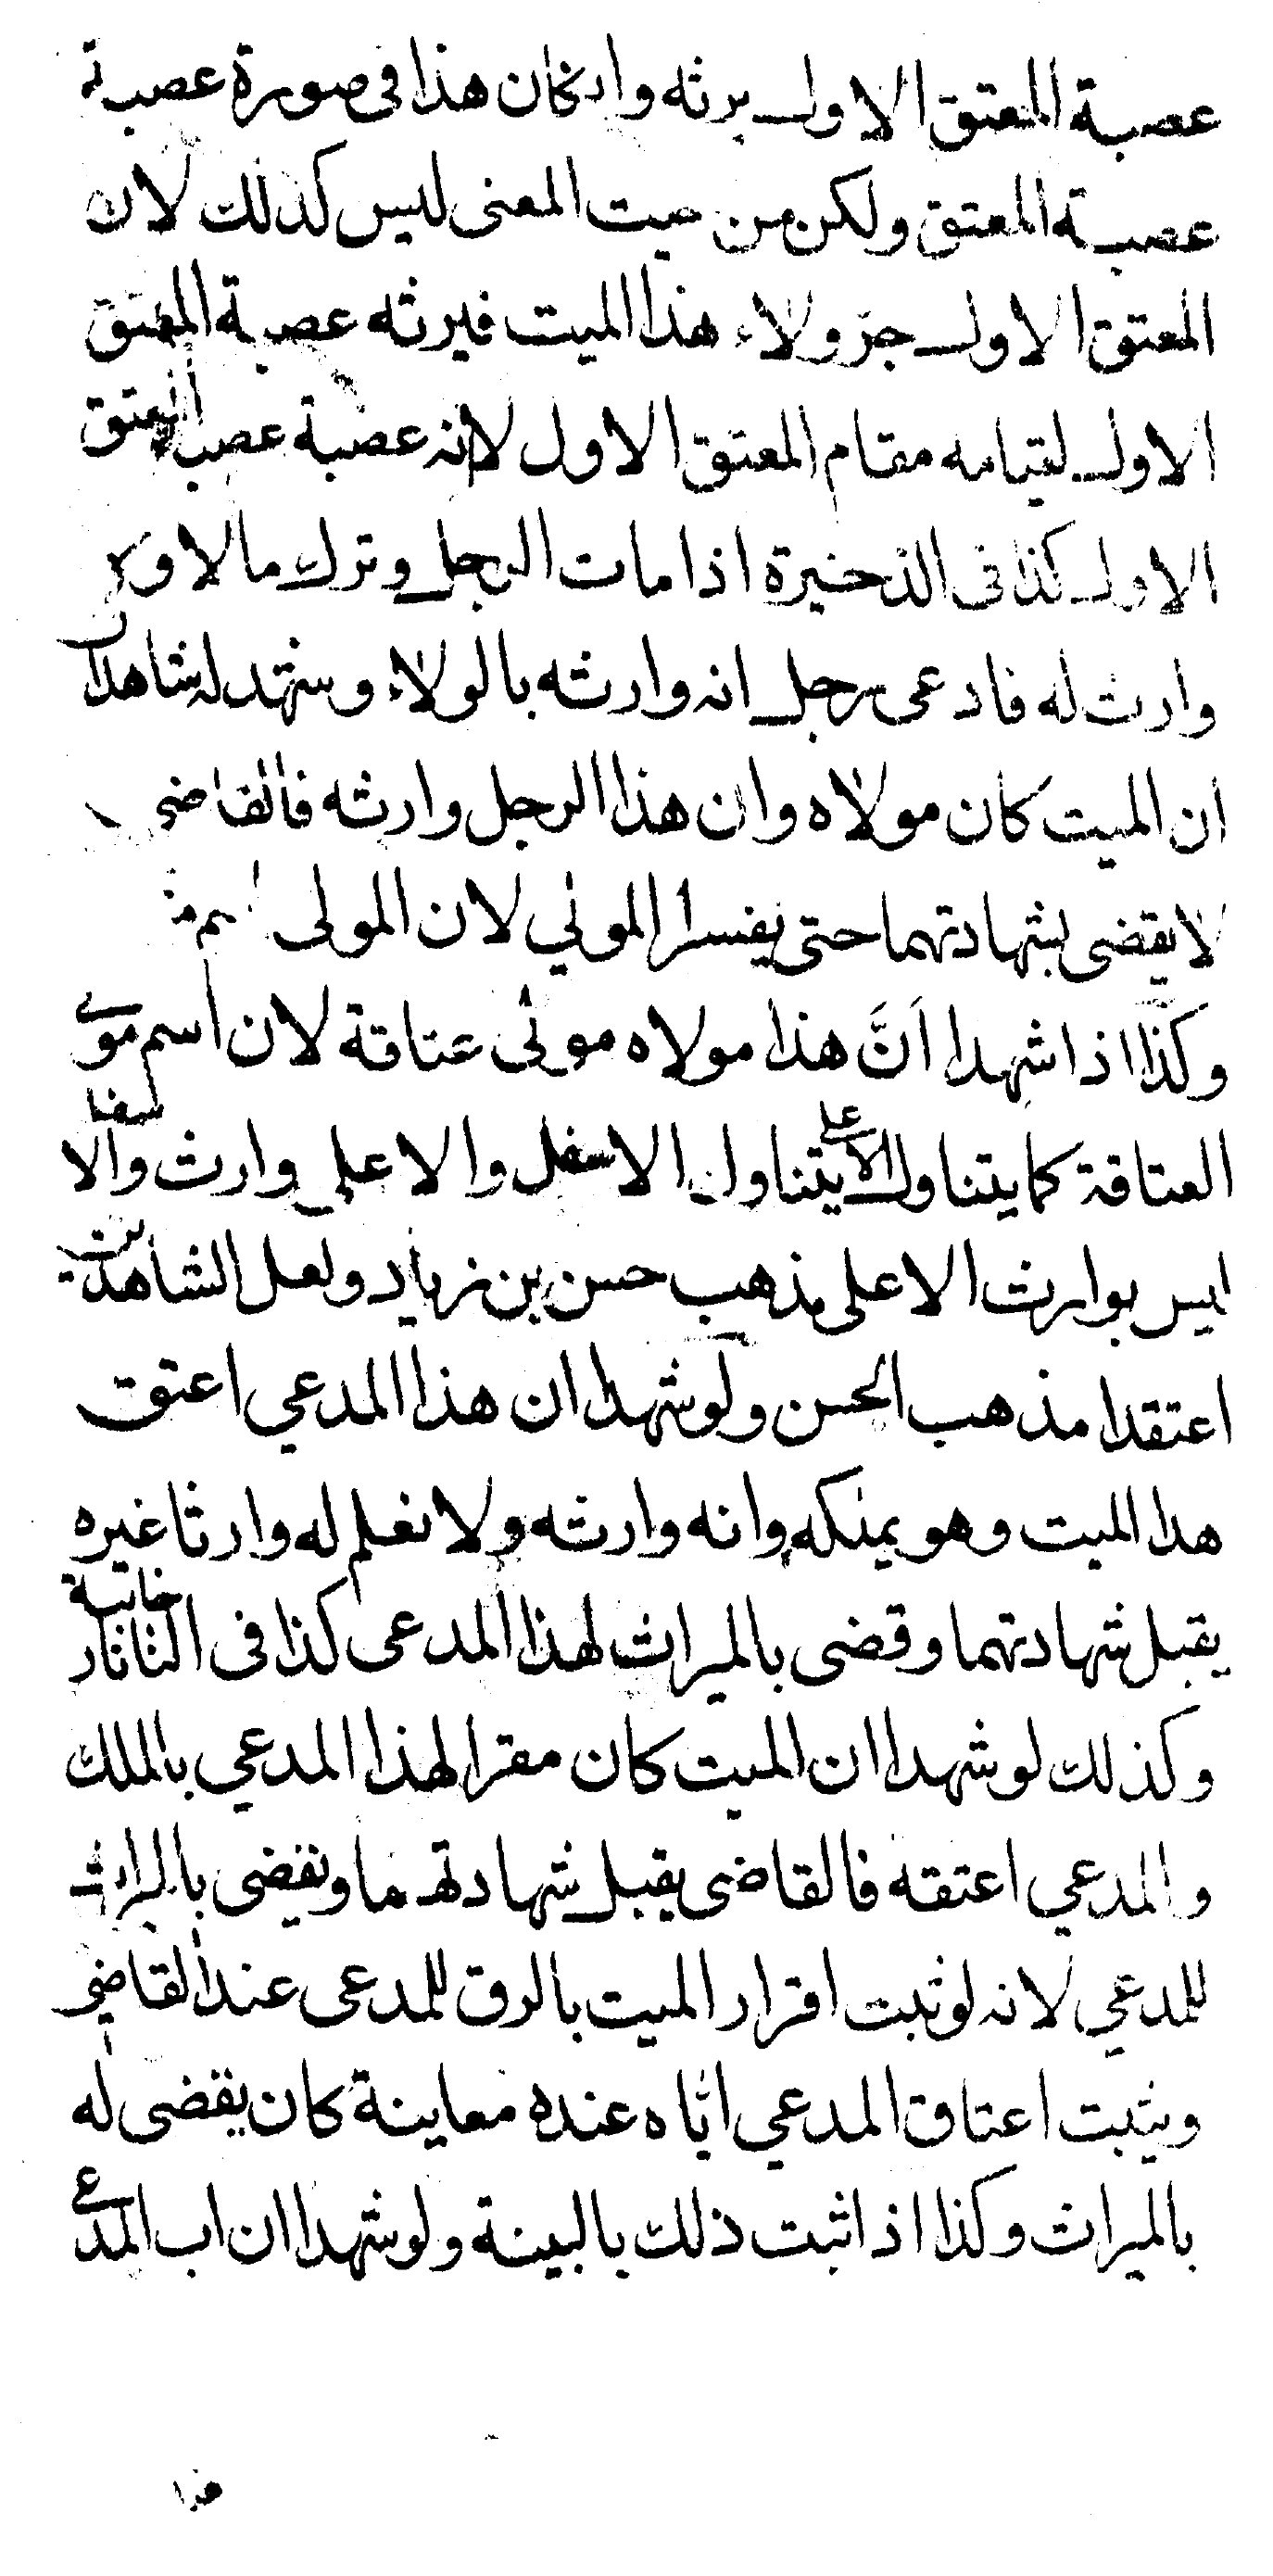 عصبة المعتق الاول يرثه وان كان هذا فى صورة عصبة
عصبة المعتق ولكن من حيث المعنى ليس كذلك لان
المعتق الاول جرّ ولاء هذا الميت فيرثه عصبة المعتق
الاول لقيامه مقام المعتق الاول لانه عصبة عصبة المعتق
الاول كذا فى الذخيرة اذا مات الرجل وترك مالا ولا
وارث له فادعى رجل انه وارثه بالولاء وشهد له شاهدان
ان الميت كان مولاه وان هذا الرجل وارثه فالقاضى
لا يقضى بشهادتهما حتى يفسرا المولي لان المولى
وكذا اذا شهدا اَنَّ هذا مولاه مولى عتاقة لان اسم مولى
العتاقة كما يتناول الاعلى يتناول الاسفل والاعلى وارث والاسفل
ليس بوارث الاعلى مذهب حسن بن زياد ولعل الشاهدين
اعتقدا مذهب الحسن ولو شهدا ان هذا المدعي اعتق
هذا الميت وهو يملكه وانه وارثه ولا نعلم له وارثا غيره
يقبل شهادتهما وقضى بالميراث لهذا المدعى كذا فى التاتارخانية
وكذلك لو شهدا ان الميت كان مقرا لهذا المدعي بالملك
والمدعي اعتقه فالقاضى يقبل شهادتهما ويقضى بالميراث
للمدعي لانه لو ثبت اقرار الميت بالرق للمدعى عند القاضي
ويثبت اعتاق المدعي ايّاه عنده معاينة كان يقضى له
بالميراث وكذا اذا ثبت ذلك بالبينة ولو شهدا ان اب المدعى
هذا